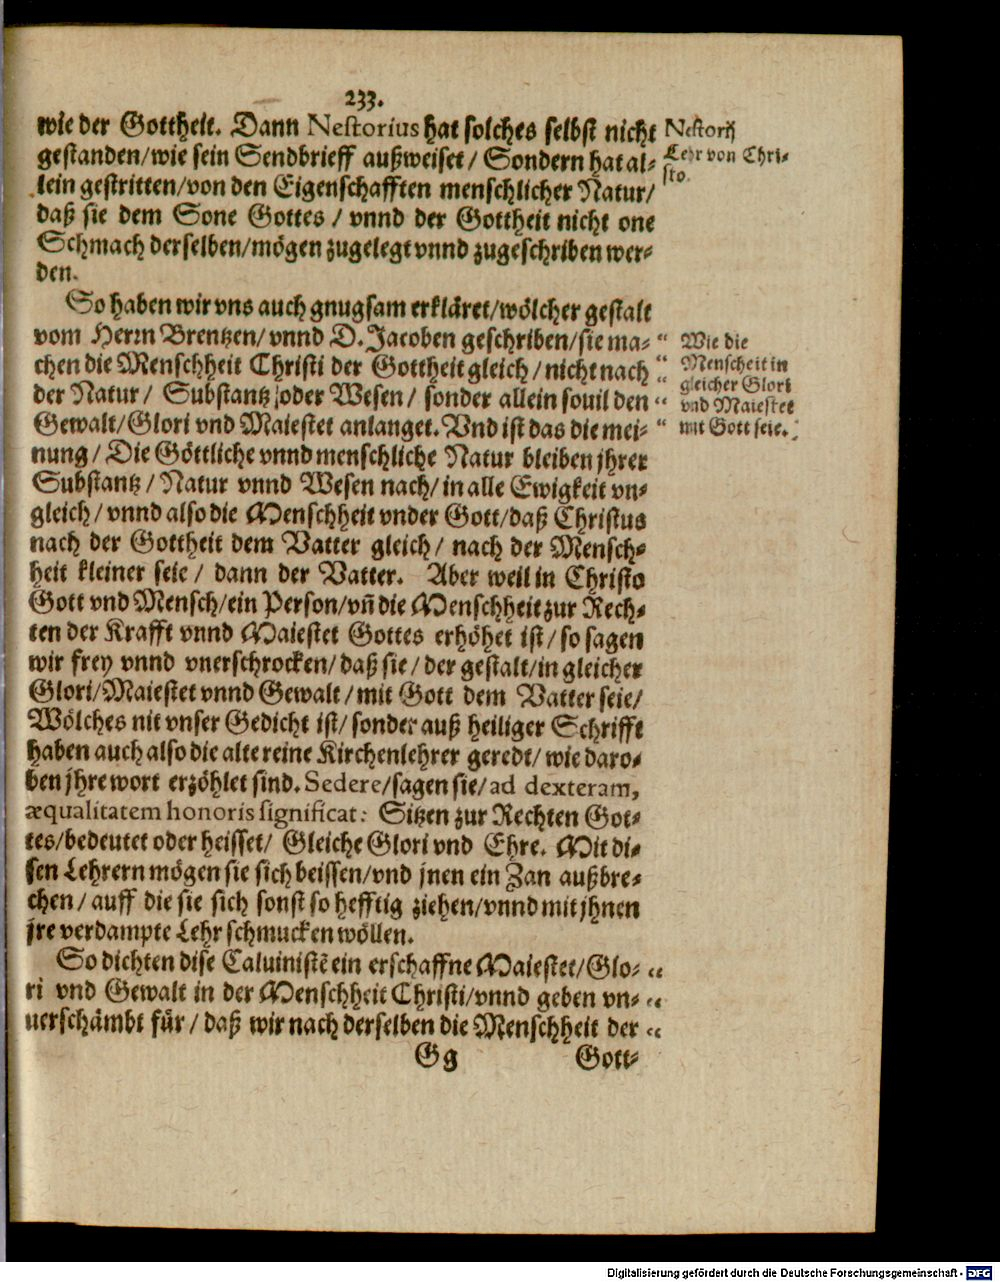 233.
wie der Gottheit. Dann Nestorius hat solches selbst nicht
gestanden/wie sein Sendbrieff außweiset/ Sondern hat al-
lein gestritten/von den Eigenschafften menschlicher Natur/
daß sie dem Sone Gottes / vnnd der Gottheit nicht one
Schmach derselben/mögen zugelegt vnnd zugeschriben wer-
den.
Nestorij
Lehr von Chri-
sto.
So haben wir vns auch gnugsam erkläret/wölcher gestalt
vom Herrn Brentzen/vnnd D. Jacoben geschriben/sie ma- "
chen die Menschheit Christi der Gottheit gleich/nicht nach "
der Natur/ Substantz/oder Wesen/ sonder allein souil den "
Gewalt/Glori vnd Maiestet anlanget. Vnd ist das die mei- "
nung/ Die Göttliche vnnd menschliche Natur bleiben jhrer
Substantz/Natur vnnd Wesen nach/in alle Ewigkeit vn-
gleich/vnnd also die Menschheit vnder Gott/daß Christus
nach der Gottheit dem Vatter gleich/ nach der Mensch-
heit kleiner seie/ dann der Vatter. Aber weil in Christo
Gott vnd Mensch/ein Person/vñ die Menschheit zur Rech-
ten der Krafft vnnd Maiestet Gottes erhöhet ist/so sagen
wir frey vnnd vnerschrocken/daß sie/der gestalt/in gleicher
Glori/Maiestet vnnd Gewalt/mit Gott dem Vatter seie/
Wölches nit vnser Gedicht ist/sonder auß heiliger Schrifft
haben auch also die alte reine Kirchenlehrer geredt/wie daro-
ben jhre wort erzöhlet sind. Sedere/sagen sie/ad dexteram,
æqualitatem honoris significat: Sitzen zur Rechten Got-
tes/bedeutet oder heisset/ Gleiche Glori vnd Ehre. Mit di-
sen Lehrern mögen sie sich beissen/vnd jnen ein Zan außbre-
chen/auff die sie sich sonst so hefftig ziehen/vnnd mit jhnen
jre verdampte Lehr schmucken wöllen.
Wie die
Menscheit in
gleicher Glori
vnd Maiestet
mit Gott seie.
So dichten dise Caluinistẽ ein erschaffne Maiestet/Glo- "
ri vnd Gewalt in der Menschheit Christi/vnnd geben vn- "
uerschämbt für/daß wir nach derselben die Menschheit der "
Gg Gott-
Digitalisierung gefördert durch die Deutsche Forschungsgemeinschaft - DFG